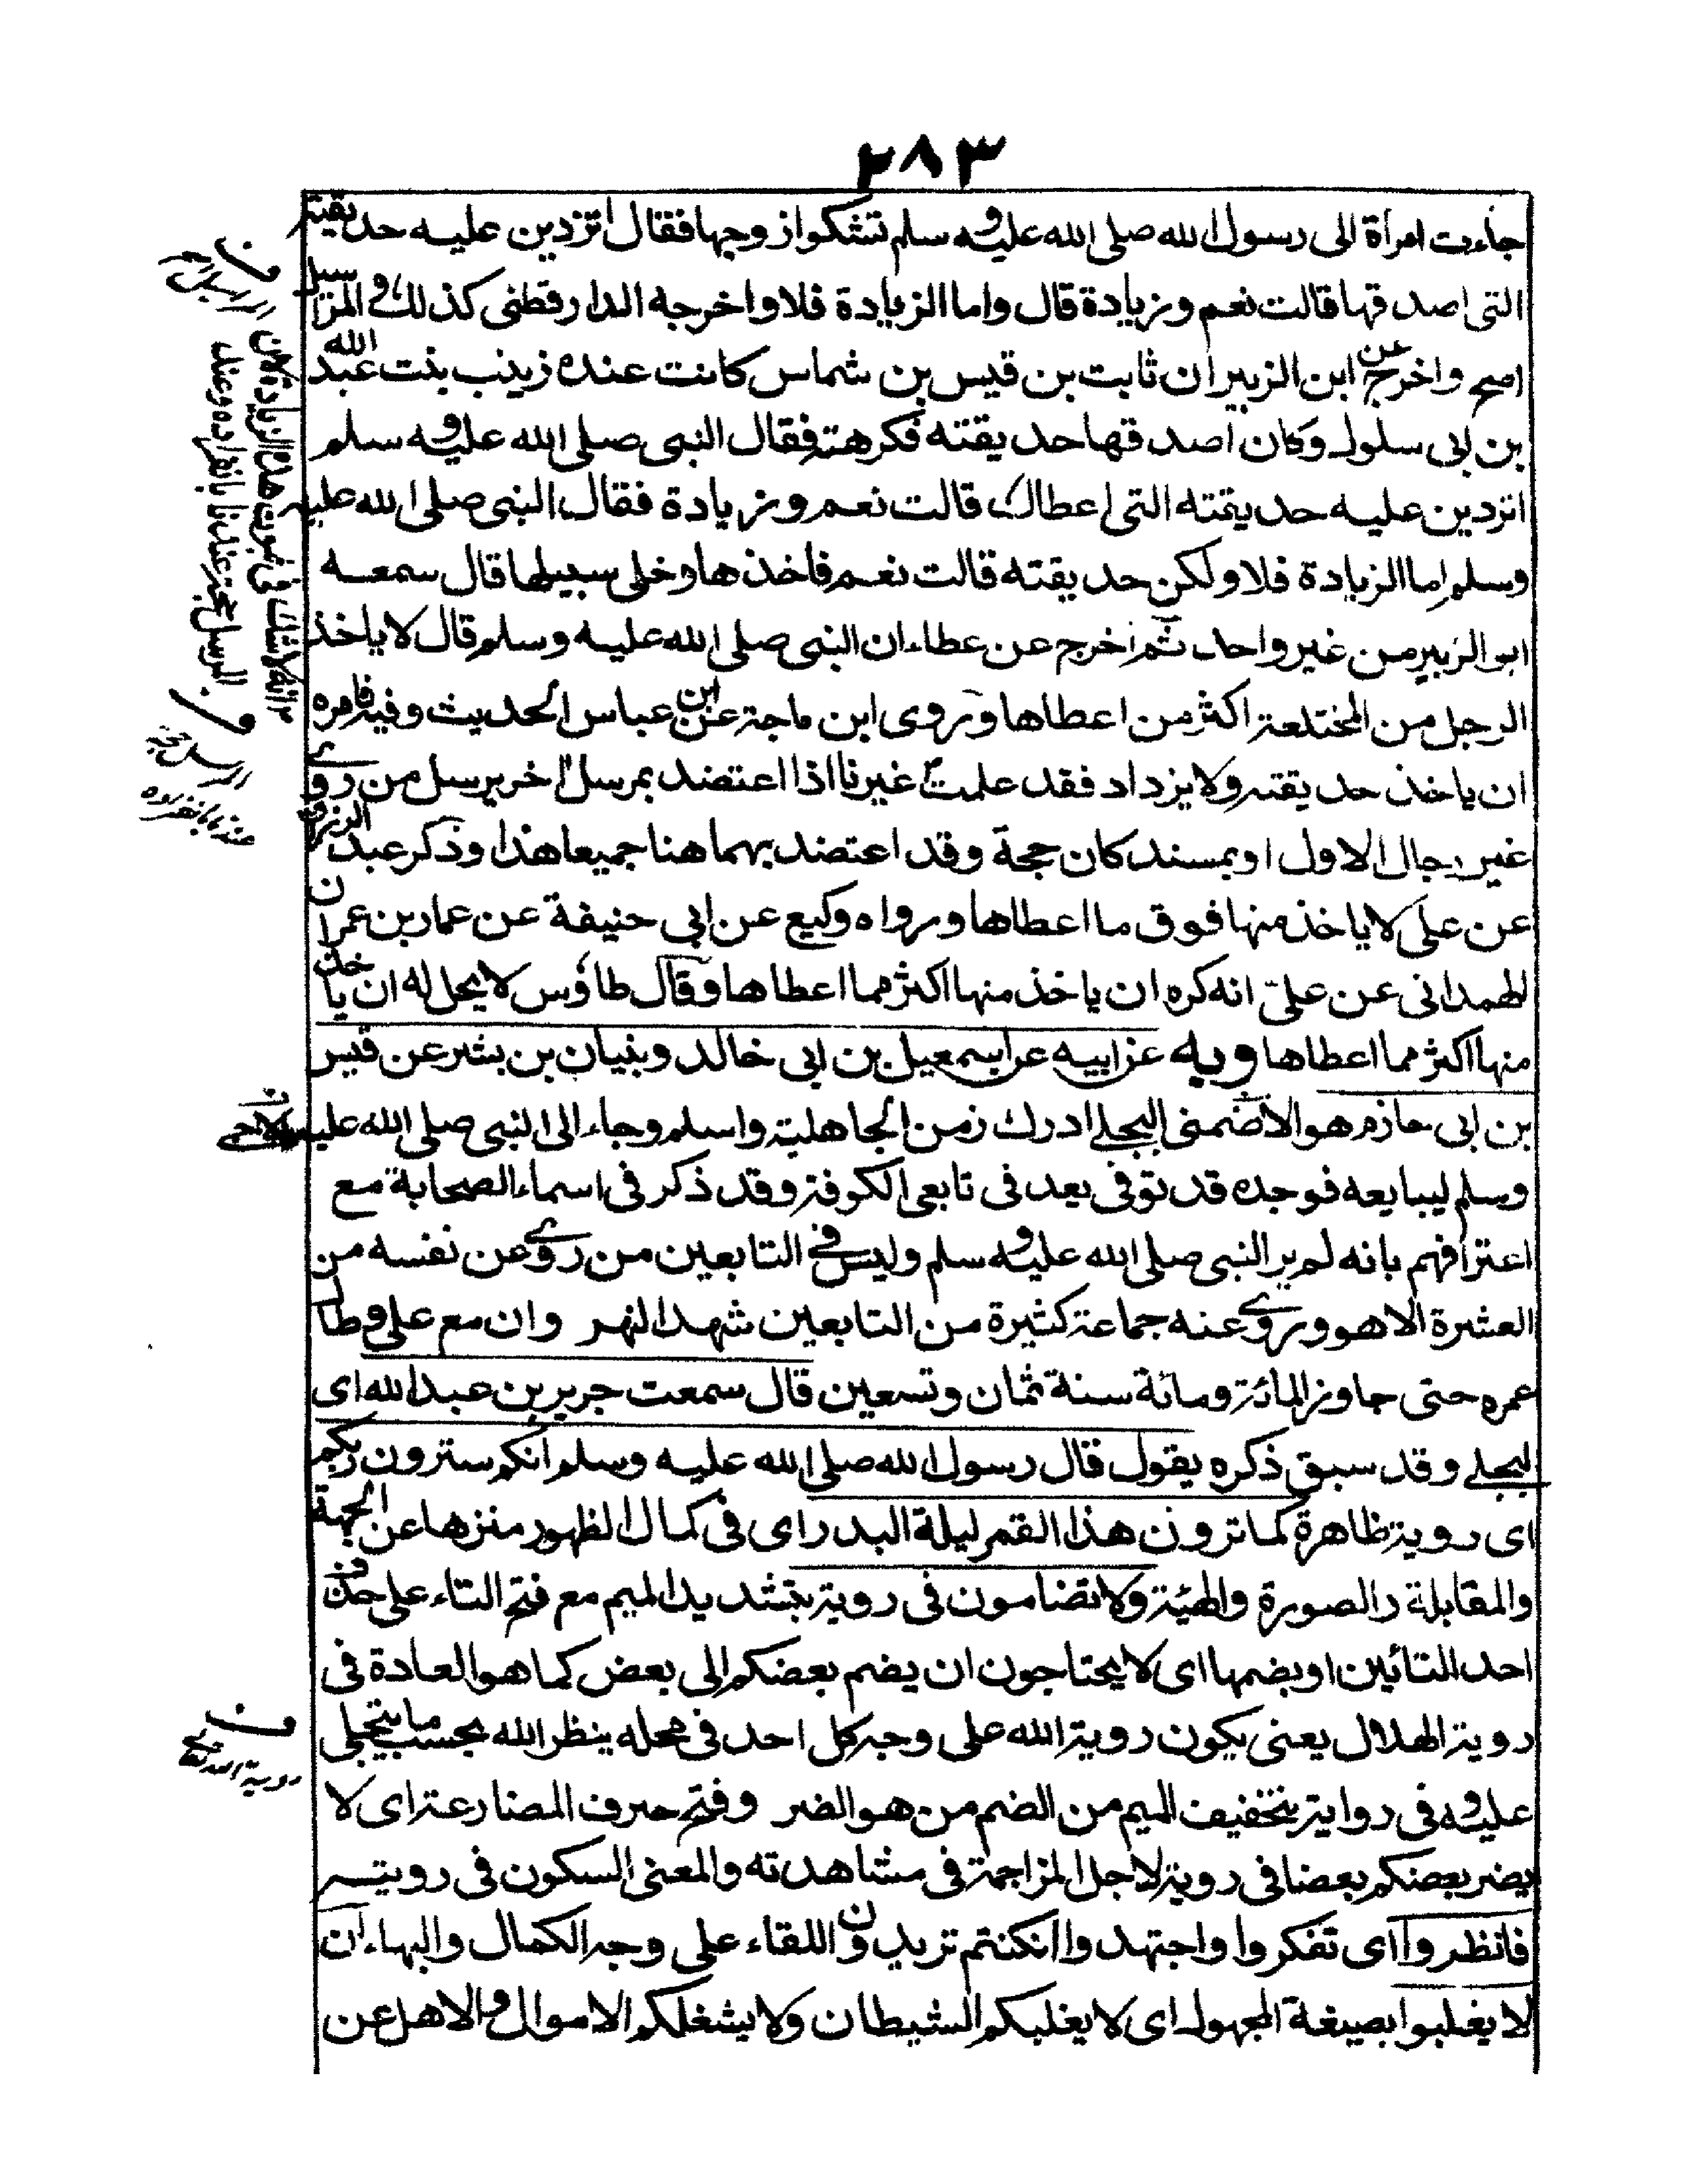 ٢٨٣
جاءت امرأة الى رسول الله صلى الله عليه وسلم تشكوا زوجها فقال اتردين عليه حديقته
التى اصدقها قالت نعم وزيادة قال واما الزيادة فلا واخرجه الدارقطنى كذلك و المرسل
اصح واخرج عن ابن الزبير ان ثابت بن قيس بن شماس كانت عنده زينب بنت عبد الله
بن ابى سلول وكان اصدقها حديقته فكرهته فقال النبى صلى الله عليه وسلم
اتردين عليه حديقته التى اعطاك قالت نعم وزيادة فقال النبى صلى الله عليه
وسلم اما الزيادة فلا ولكن حديقته قالت نعم فاخذها وخلى سبيلها قال سمعه
ابو الزبير من غير واحد ثم اخرج عن عطاء ان النبى صلى الله عليه وسلم قال لا ياخذ
الرجل من المختلعة اكثر من اعطاها وروى ابن ماجة عن ابن عباس الحديث وفيه فامره
ان ياخذ حديقته ولا يزداد فقد علمت غيرنا اذا اعتضد بمرسل اخر يرسل من روى
غير رجال الاول او بمسند كان حجة وقد اعتضد بهما هنا جميعا هذا وذكر عبد الرزاق
عن على لا ياخذ منها فوق ما اعطاها ورواه وكيع عن ابى حنيفة عن عمار بن عمران
الهمدانى عن على انه كره ان ياخذ منها اكثر مما اعطاها وقال طاؤس لا يحل له ان ياخذ
منها اكثر مما اعطاها وبه عن ابيه عن اسمعيل بن ابى خالد وبنيان بن بشر عن قيس
بن ابى حازم هو الاضمنى البجلى ادرك زمن الجاهلية واسلم وجاء الى النبى صلى الله عليه
وسلم ليبايعه فوجده قد توفى يعد فى تابعى الكوفة وقد ذكر فى اسماء الصحابة مع
اعترافهم بانه لم ير النبى صلى الله عليه وسلم وليس فى التابعين من روى عن نفسه من
العشرة الا هو وروى عنه جماعة كثيرة من التابعين شهد النهر وان مع على وطال
عمره حتى جاوز المائة ومائة سنة ثمان وتسعين قال سمعت جرير بن عبد الله اى
البجلى وقد سبق ذكره يقول قال رسول الله صلى الله عليه وسلم انكم سترون ربكم
اى روية ظاهرة كما ترون هذا القمر ليلة البدر اى فى كمال الظهور منزها عن الجهة
والمقابلة والصورة والهيئة ولا تضامون فى روية بتشديد الميم مع فتح التاء على حذف
احد التائين او بضمها اى لا يحتاجون ان يضم بعضكم الى بعض كما هو العادة فى
روية الهلال يعنى يكون روية الله على وجه كل احد فى محله ينظر الله بحسب ما يتجلى
عليه وفى رواية بتخفيف الميم من الضم من هو الضر وفتح حرف المضارعة اى لا
يضر بعضكم بعضا فى روية لاجل المزاحمة فى مشاهدته والمعنى السكون فى رويته
فانظروا اى تفكروا واجتهدوا انكنتم تريدون اللقاء على وجه الكمال والبهاء ان
لا يغلبوا بصيغة المجهول اى لا يغلبكم الشيطان ولا يشغلكم الاموال والاهل عن